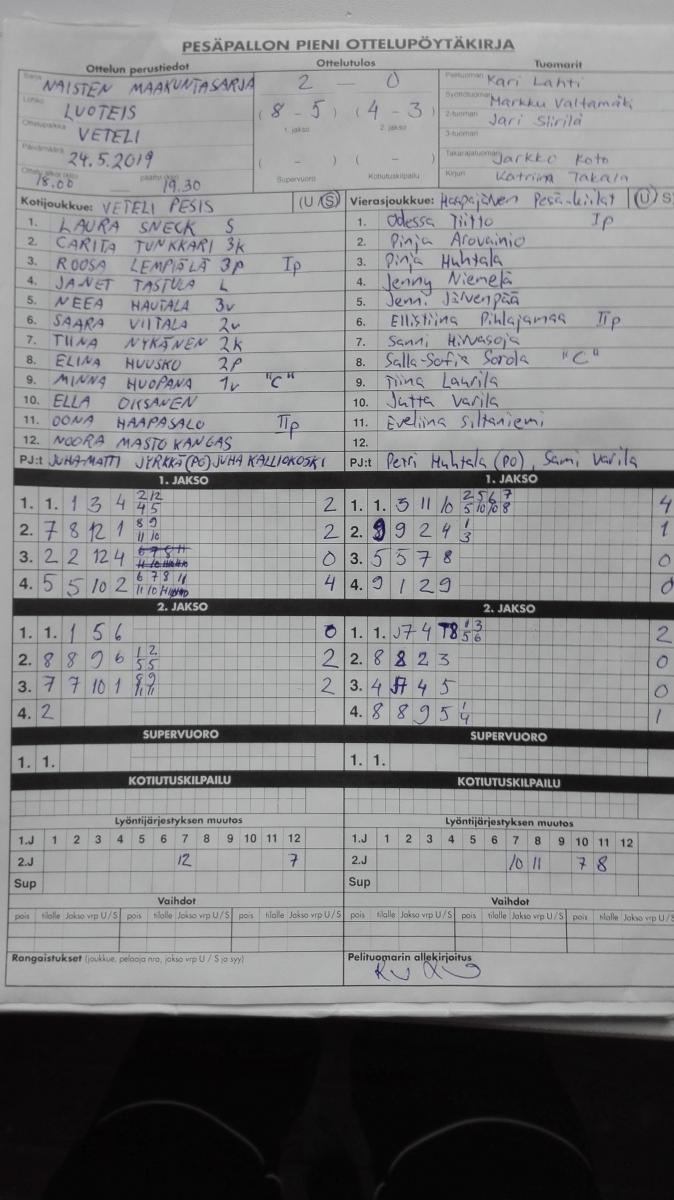 PESÄPALLON PIENI OTTELUPÖYTÄKIRJA
Ottelun perustiedot
Sarja NAISTEN MAAKUNTASARJA
Lohko LUOTEIS
Ottelupaikka VETELI
Päivämäärä 24.5.2019
18.00 19.30
Ottelutulos
2 – 0
(8 - 5) (4 - 3)
1. jakso 2. jakso
( - ) ( - )
Supervuoro Kotiutuskilpailu
Tuomarit
Pelituomari Kari Lahti
Syöttötuomari Markku Valtamäki
2-tuomari Jari Siirilä
3-tuomari
Takarajatuomari Jarkko Koto
Kirjuri Katriina Takala
Kotijoukkue: VETELI PESIS (U / S)
1. LAURA SNECK S
2. CARITA TUNKKARI 3k
3. ROOSA LEMPIÄLÄ 3p Ip
4. JANET TASTULA L
5. NEEA HAUTALA 3v
6. SAARA VIITALA 2v
7. TIINA NYKÄNEN 2k
8. ELINA HUUSKO 2p
9. MINNA HUOPANA 1v "C"
10. ELLA OKSANEN
11. OONA HAAPASALO IIp
12. NOORA MASTOKANGAS
PJ:t JUHA-MATTI JYRKKÄ (PG) JUHA KALLIOKOSKI
Vierasjoukkue: Haapajärven Pesä-kiilat (U / S
1. Odessa Tiitto Ip
2. Pinja Arovainio
3. Pinja Huhtala
4. Jenny Niemelä
5. Jenni Järvenpää
6. Ellistiina Pihlajamaa IIp
7. Sanni Hirvasoja
8. Salla-Sofia Sorola "C"
9. Tiina Laurila
10. Jutta Varila
11. Eveliina Siltaniemi
12.
PJ:t Petri Huhtala (PO), Sami Varila
1. JAKSO
1. 1. 1 3 4 2 12 4 5 2
2. 7 8 12 1 8 9 11 10 2
3. 2 2 12 4 0
4. 5 5 10 2 6 7 8 11 4
2. JAKSO
1. 1. 1 5 6 0
2. 8 8 9 6 1 2 5 5 2
3. 7 7 10 1 2
4. 2
SUPERVUORO
1. 1.
KOTIUTUSKILPAILU
Lyöntijärjestyksen muutos
1.J 1 2 3 4 5 6 7 8 9 10 11 12
2.J 12 7
Sup
Vaihdot
pois tilalle Jakso vrp U / S pois tilalle Jakso vrp U / S pois tilalle Jakso vrp U / S
Rangaistukset (joukkue, pelaaja nro, jakso vrp U / S ja syy)
1. JAKSO
1. 1. 3 11 10 2 5 6 7 5 10 10 8 4
2. 9 9 2 4 1 3 1
3. 5 5 7 8 0
4. 9 1 2 9 0
2. JAKSO
1. 1. 7 4 8 1 3 5 6 2
2. 8 8 2 3 0
3. 4 4 5 0
4. 8 8 9 5 1 4 1
SUPERVUORO
1. 1.
KOTIUTUSKILPAILU
Lyöntijärjestyksen muutos
1.J 1 2 3 4 5 6 7 8 9 10 11 12
2.J 10 11 7 8
Sup
Vaihdot
pois tilalle Jakso vrp U / S pois tilalle Jakso vrp U / S pois tilalle Jakso
Pelituomarin allekirjoitus